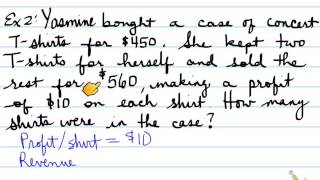 Ex 2: Yasmine bought a case of concert
T-shirts for $450. She kept two
T-shirts for herself and sold the
rest for $560, making a profit
of $10 on each shirt. How many
shirts were in the case?
Profit/shirt = $10
Revenue